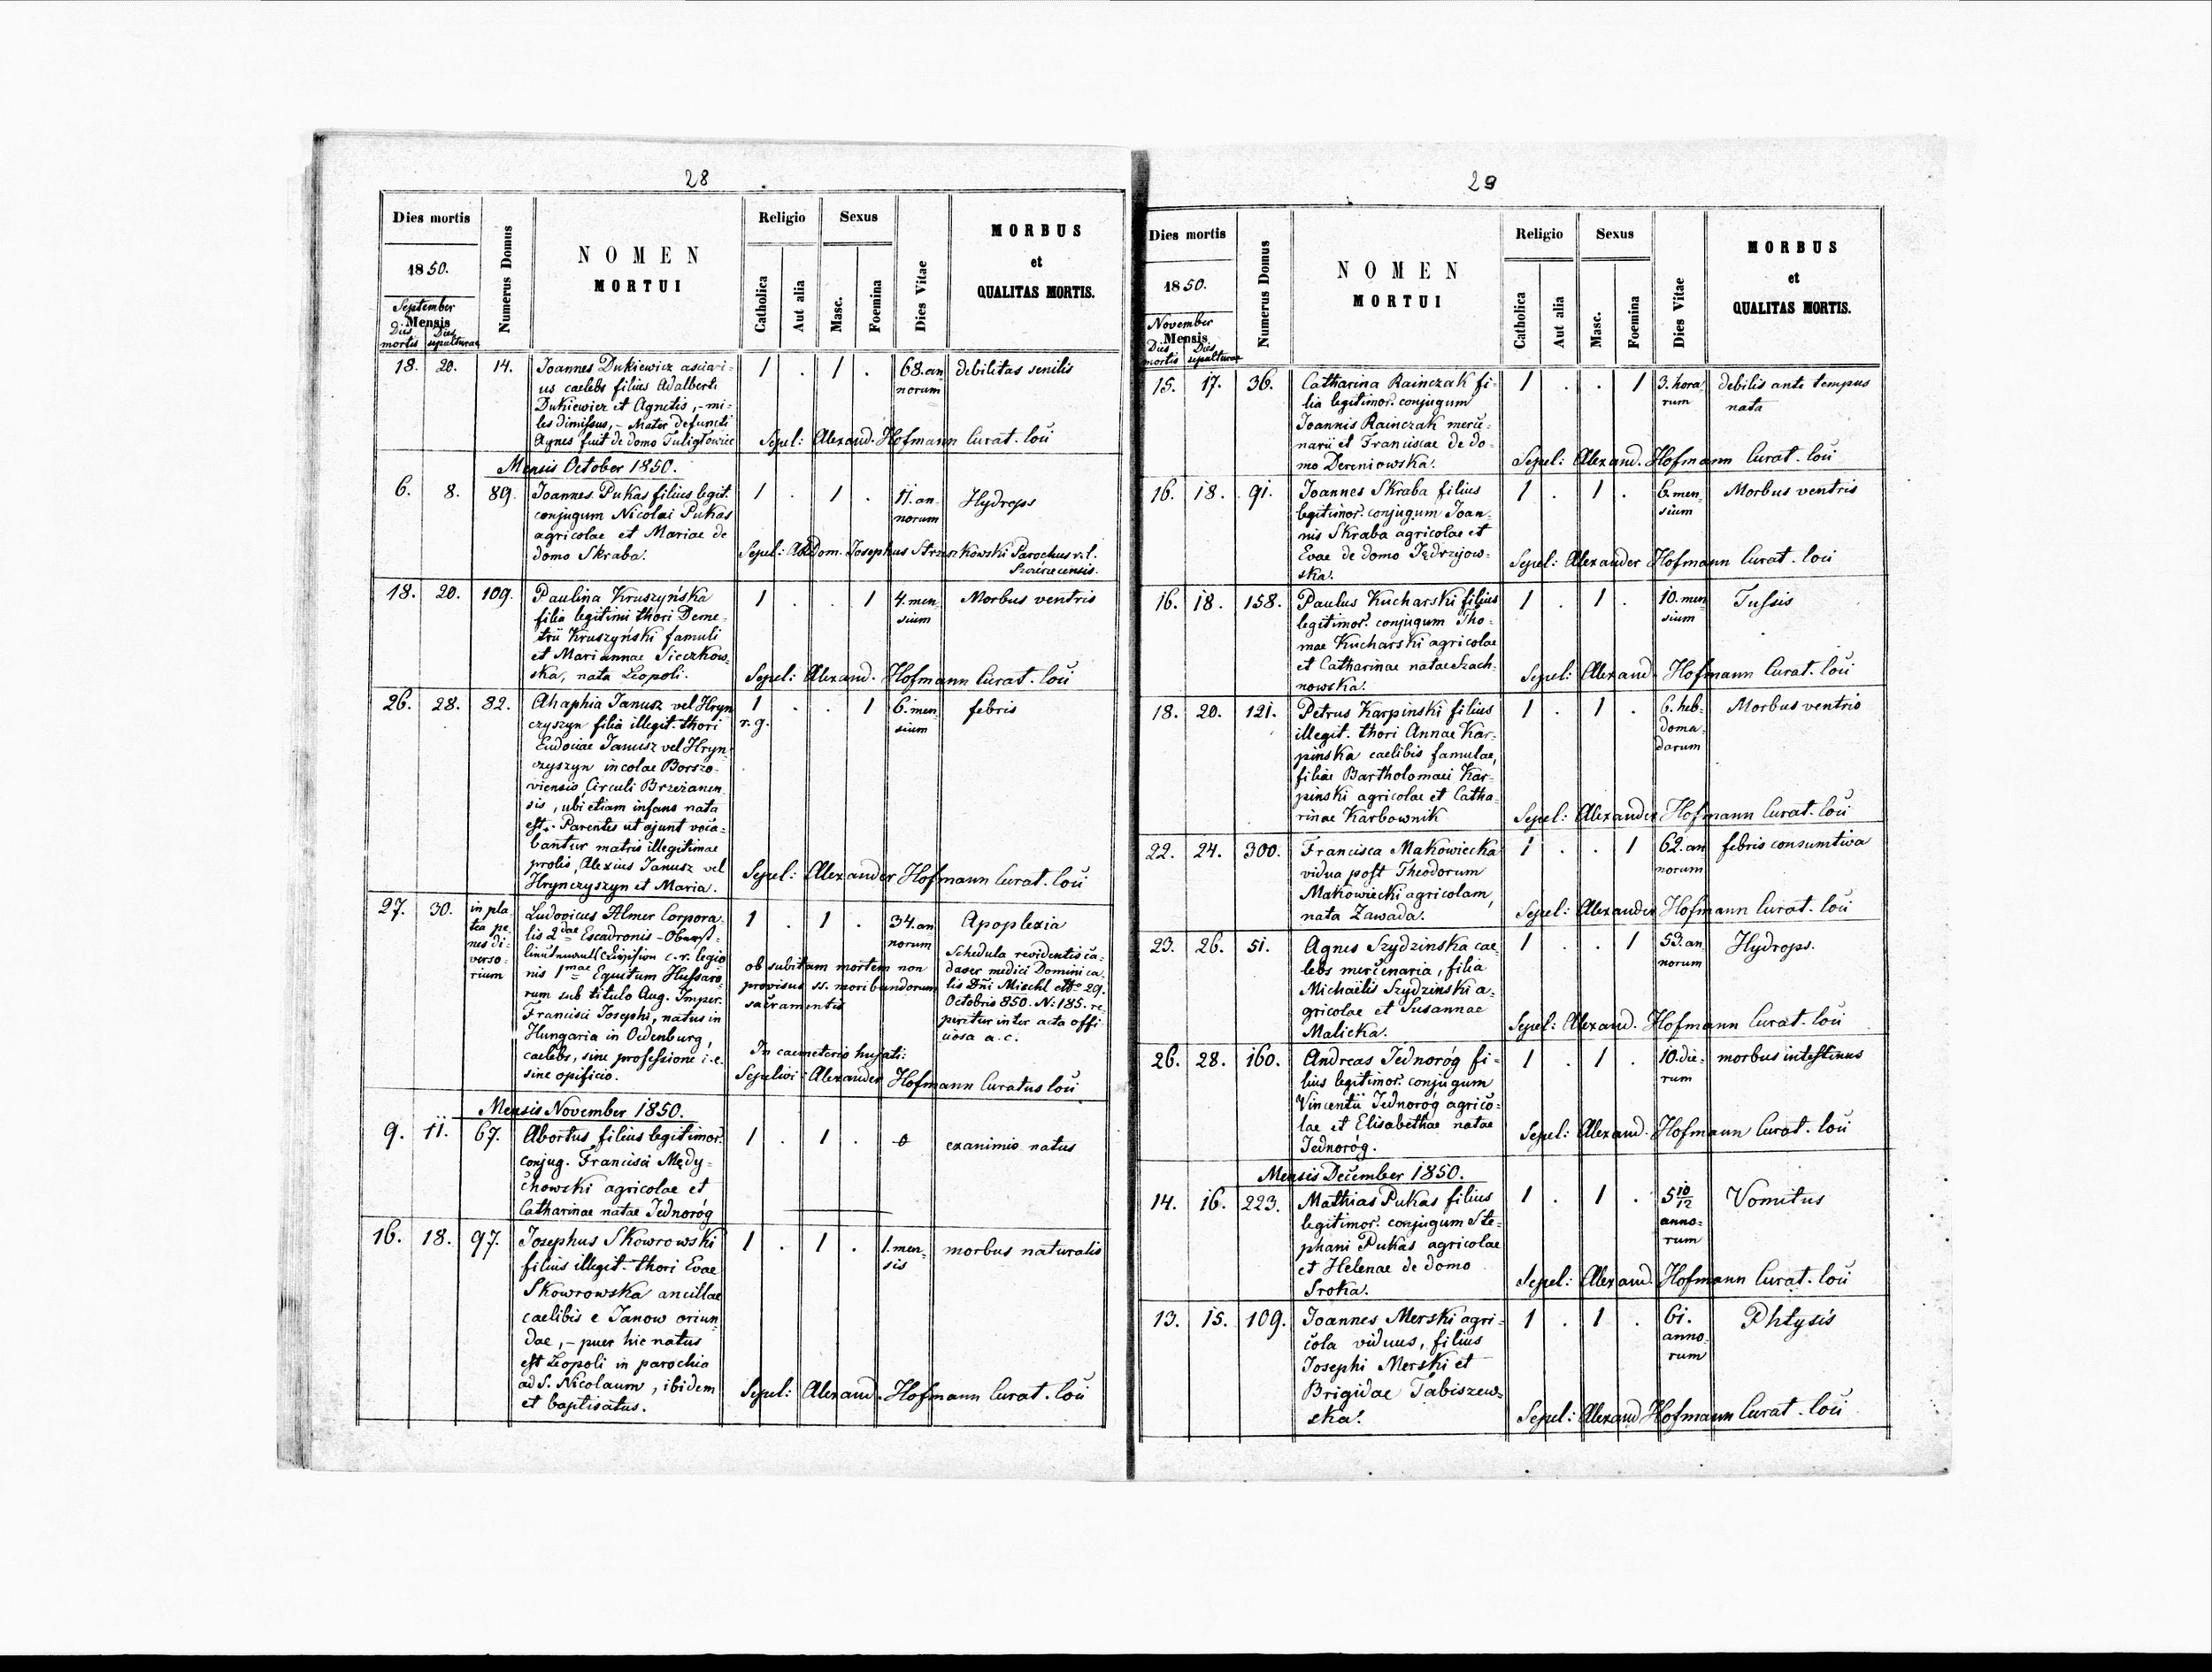 28
Dies mortis
1850.
September
Mensis
Dies mortis
Dies sepulturae
Numerus Domus
NOMEN
MORTUI
Religio
Catholica
Aut alia
Sexus
Masc.
Foemina
Dies Vitae
MORBUS
et
QUALITAS MORTIS.
18. 20. 14. Joannes Dukiewicz asciari= 1 . 1 . 68. an debilitas senilis
us caelebs filius Adalberti norum
Dukiewicz et Agnetis, - mi=
les dimissus, - Mater defuncti
Agnes fuit de domo Tuligłowicz Sepel: Alexand. Hofmann Curat. loci
Mensis October 1850.
6. 8. 89. Joannes Pukas filius legit. 1 . 1 . 11. an= Hydrops
conjugum Nicolai Pukas norum
agricolae et Mariae de
domo Skraba. Sepel: Josephus Parochus r. l.
18. 20. 109. Paulina Kruszyńska 1 . . 1 4. men Morbus ventris
filia legitimi thori Deme= sium
trii Kruszyński famuli
et Mariannae Sieczkow=
ska, nata Leopoli. Sepel: Alexand. Hofmann Curat. loci
26. 28. 82. Ahaphia Janusz vel Hryn 1 . . 1 6. men= febris
czyszyn filia illegit. thori r. g. sium
Eudociae Janusz vel Hryn=
czyszyn incolae Borszo=
viensis, Circuli Brzeżanen
sis, ubi etiam infans nata
est. Parentes ut ajunt voca=
bantur matris illegitimae
prolis, Alexius Janusz vel
Hrynczyszyn et Maria. Sepel: Alexander Hofmann Curat. loci
27. 30. in pla Ludovicus Almer Corpora= 1 . 1 . 34. an= Apoplexia
tea pe lis 2dae Escadronis - norum
nes di= c. r. legio
verso= nis 1mae Equitum Hussaro=
rium rum sub titulo Aug. Imper.
Francisci Josephi, natus in
Hungaria in Oedenburg,
caelebs, sine professione i. e.
sine opificio.
ob subitam mortem non
provisus ss. moribundorum
sacramentis
Schedula revidentis ca=
daver medici Dominica
lis Dni Mischl dtto 29.
Octobris 850. N: 185. re=
peritur inter acta offi=
ciosa a. c.
In caemeterio hujati:
Sepelivi: Alexander Hofmann Curatus loci
Mensis November 1850.
9. 11. 67. Abortus, filius legitimor. 1 . 1 . 0 exanimis natus
conjug. Francisci Mędy=
chowski agricolae et
Catharinae natae Jednoróg
16. 18. 97. Josephus Skowrowski 1 . 1 . 1. men= morbus naturalis
filius illegit. thori Evae sis
Skowrowska ancillae
caelibis e Janow oriun=
dae, - puer hic natus
est Leopoli in parochia
ad S. Nicolaum, ibidem
et baptisatus. Sepel: Alexand. Hofmann Curat. loci
29
Dies mortis
1850.
November
Mensis
Dies mortis
Dies sepulturae
Numerus Domus
NOMEN
MORTUI
Religio
Catholica
Aut alia
Sexus
Masc.
Foemina
Dies Vitae
MORBUS
et
QUALITAS MORTIS.
15. 17. 36. Catharina Rainczak fi= 1 . . 1 3. hora debilis ante tempus
lia legitimor. conjugum rum nata
Joannis Rainczak merce=
narii et Franciscae de do=
mo Dereniowska. Sepel: Alexand. Hofmann Curat. loci
16. 18. 91. Joannes Skraba filius 1 . 1 . 6. men= Morbus ventris
legitimor. conjugum Joan= sium
nis Skraba agricolae et
Evae de domo Jędrzejow=
ska. Sepel: Alexander Hofmann Curat. loci
16. 18. 158. Paulus Kucharski filius 1 . 1 . 10. men Tussis
legitimor. conjugum Tho= sium
mae Kucharski agricolae
et Catharinae natae Szach=
nowska. Sepel: Alexand. Hofmann Curat. loci
18. 20. 121. Petrus Karpinski filius 1 . 1 . 6. heb= Morbus ventris
illegit. thori Annae Kar= doma=
pinska caelibis famulae, darum
filiae Bartholomaei Kar=
pinski agricolae et Catha=
rinae Karbownik Sepel: Alexander Hofmann Curat. loci
22. 24. 300. Francisca Makowiecka 1 . . 1 62. an febris consumtiva
vidua post Theodorum norum
Makowiecki agricolam,
nata Zawada. Sepel: Alexander Hofmann Curat. loci
23. 26. 51. Agnes Szydzinska cae 1 . . 1 53. an Hydrops.
lebs mercenaria, filia norum
Michaëlis Szydzinski a=
gricolae et Susannae
Malicka. Sepel: Alexand. Hofmann Curat. loci
26. 28. 160. Andreas Jednoróg fi= 1 . 1 . 10. die= morbus intestinus
lius legitimor. conjugum rum
Vincentii Jednoróg agrico=
lae et Elisabethae natae
Jednoróg. Sepel: Alexand. Hofmann Curat. loci
Mensis December 1850.
14. 16. 223. Mathias Pukas filius 1 . 1 . 5 10/12 Vomitus
legitimor. conjugum Ste= anno=
phani Pukas agricolae rum
et Helenae de domo
Sroka. Sepel: Alexand. Hofmann Curat. loci
13. 15. 109. Joannes Merski agri= 1 . 1 . 61. Phtysis
cola viduus, filius anno=
Josephi Merski et rum
Brigidae Tabiszew=
ska. Sepel: Alexand Hofmann Curat. loci